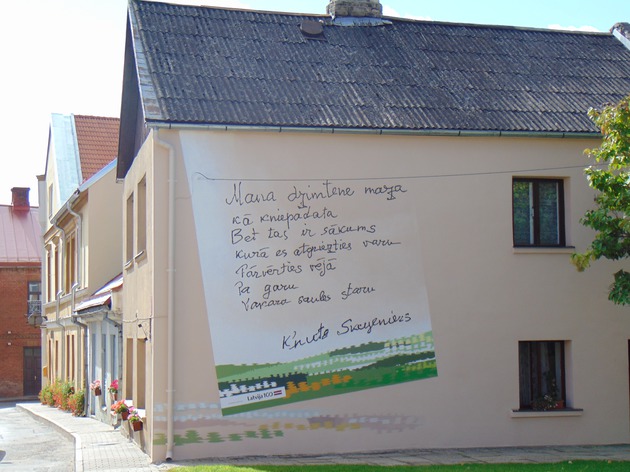 Mana dzimtene maza
kā kniepadata
Bet tas ir sākums
kurā es atgriezties varu
Pārvērties vējā
Pa garu
Vakara saules staru
Knuts Skujenieks
Latvija 100